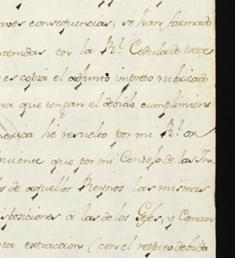 aves consequencias, se han formado
contenidas en la Rl. Cedula de
es copia el adjunto impreso rubricado
para que tengan el debido cumplimien
he resuelto por mi Rl. or
niente que por mi Consejo de las In
s de aquellos Reynos las mismas
isposiciones á las de los Gefes, y Coman
extraccion (con el respeto debido